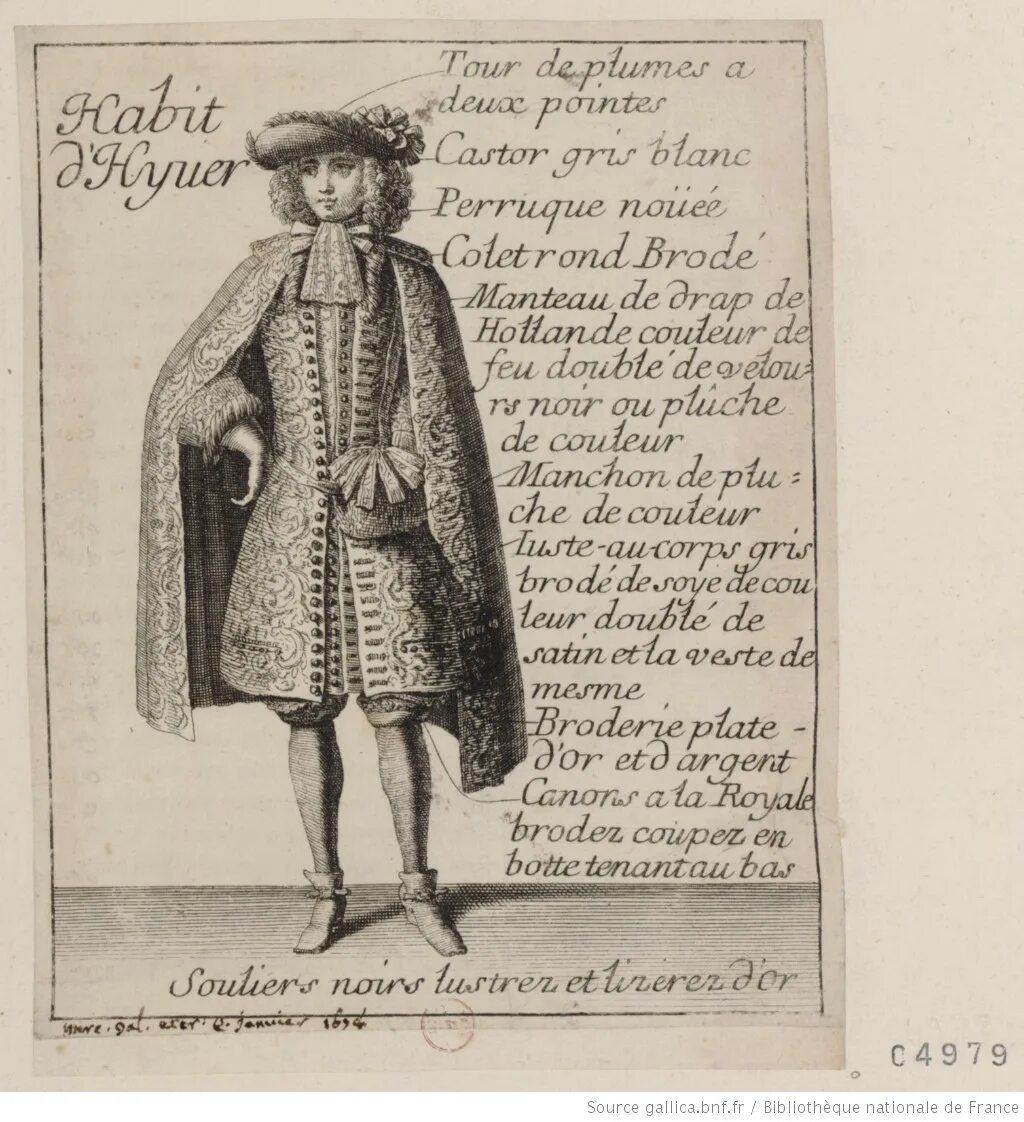 Habit
d'Hyuer
Tour de plumes a
deux pointes
Castor gris blanc
Perruque noüéé
Colet rond Brodé
Manteau de drap de
Hollande couleur de
feu doublé de velou-
rs noir ou plûche
de couleur
Manchon de plu-
che de couleur
Iuste-au-corps gris
brodé de soye de cou
leur doublé de
satin et la veste de
mesme
Broderie plate -
d'Or et d argent
Canons a la Royale
brodez coupez en
botte tenant au bas
Souliers noirs lustrez et lizerez d'Or
Janvier
C4979
Source gallica.bnf.fr / Bibliothèque nationale de France